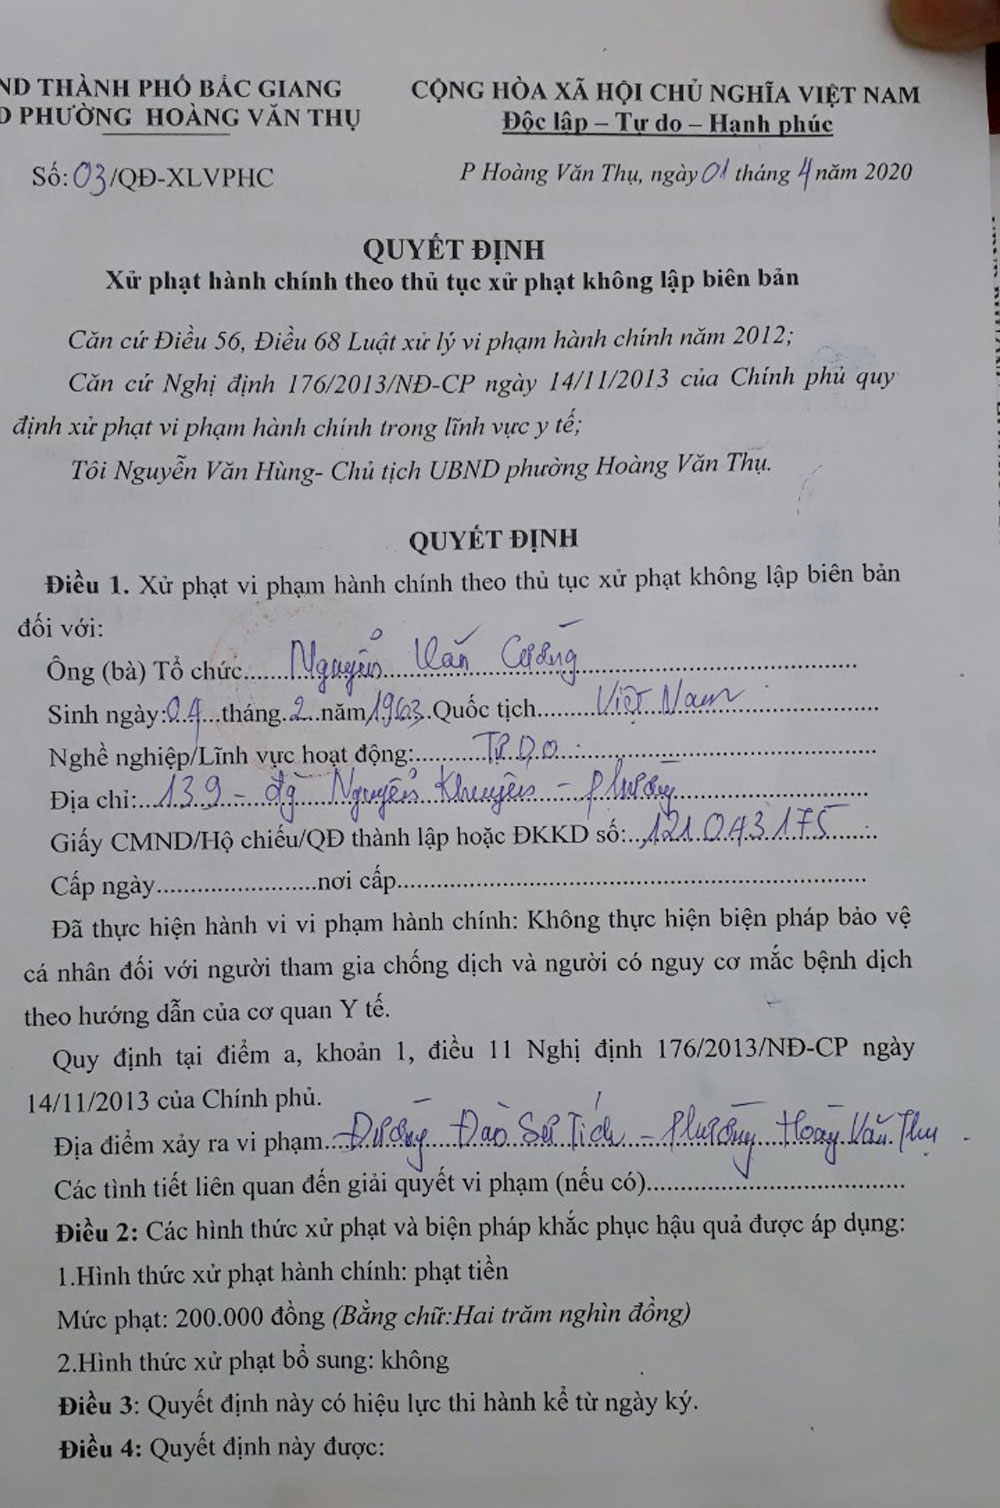 ND THÀNH PHỐ BẮC GIANG
D PHƯỜNG HOÀNG VĂN THỤ
CỘNG HÒA XÃ HỘI CHỦ NGHĨA VIỆT NAM
Độc lập – Tự do – Hạnh phúc
Số: 03/QĐ-XLVPHC
P Hoàng Văn Thụ, ngày 01 tháng 4 năm 2020
QUYẾT ĐỊNH
Xử phạt hành chính theo thủ tục xử phạt không lập biên bản
Căn cứ Điều 56, Điều 68 Luật xử lý vi phạm hành chính năm 2012;
Căn cứ Nghị định 176/2013/NĐ-CP ngày 14/11/2013 của Chính phủ quy
định xử phạt vi phạm hành chính trong lĩnh vực y tế;
Tôi Nguyễn Văn Hùng- Chủ tịch UBND phường Hoàng Văn Thụ.
QUYẾT ĐỊNH
Điều 1. Xử phạt vi phạm hành chính theo thủ tục xử phạt không lập biên bản
đối với:
Ông (bà) Tổ chức....Nguyễn Văn Cường....
Sinh ngày:04...tháng.2..năm.1963..Quốc tịch.....Việt Nam.....
Nghề nghiệp/Lĩnh vực hoạt động:.....Tự Do.....
Địa chỉ:..139 - đg Nguyễn Khuyến - phường.....
Giấy CMND/Hộ chiếu/QĐ thành lập hoặc ĐKKD số:..121043175.....
Cấp ngày.....nơi cấp.....
Đã thực hiện hành vi vi phạm hành chính: Không thực hiện biện pháp bảo vệ
cá nhân đối với người tham gia chống dịch và người có nguy cơ mắc bệnh dịch
theo hướng dẫn của cơ quan Y tế.
Quy định tại điểm a, khoản 1, điều 11 Nghị định 176/2013/NĐ-CP ngày
14/11/2013 của Chính phủ.
Địa điểm xảy ra vi phạm...Đường Đào Sư Tích - Phường Hoàng Văn Thụ.
Các tình tiết liên quan đến giải quyết vi phạm (nếu có).....
Điều 2: Các hình thức xử phạt và biện pháp khắc phục hậu quả được áp dụng:
1.Hình thức xử phạt hành chính: phạt tiền
Mức phạt: 200.000 đồng (Bằng chữ:Hai trăm nghìn đồng)
2.Hình thức xử phạt bổ sung: không
Điều 3: Quyết định này có hiệu lực thi hành kể từ ngày ký.
Điều 4: Quyết định này được: